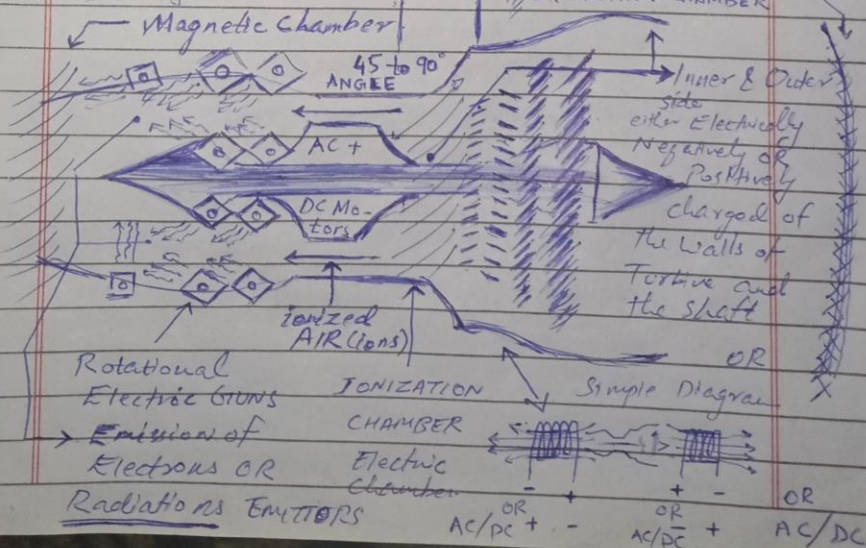 Magnetic Chamber
CHAMBER
45 to 90°
ANGLE
AC +
DC Mo-
tors
Inner & Outer
side
either Electrically
Negatively OR
Positively
charged of
the walls of
Turbine and
the shaft
OR
ionized
AIR (ions)
Rotational
Electric GUNS
Emission of
Electrons OR
Radiations EMITTORS
IONIZATION
CHAMBER
Electric
Chamber
Simple Diagram
- +
OR
AC/DC + -
+ -
OR
AC/DC - +
OR
AC/DC